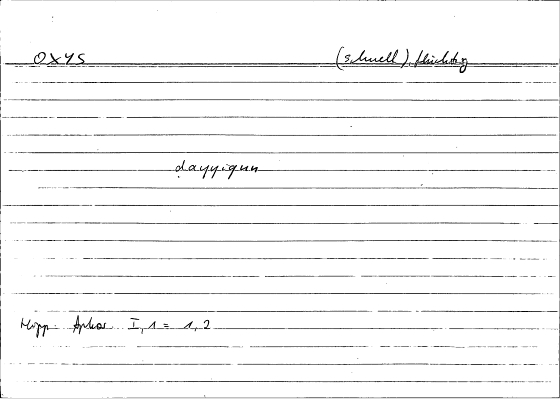 OXYS (schnell), flüchtig
dayyiqun
Hipp. Aphor. I, 1 = 1, 2